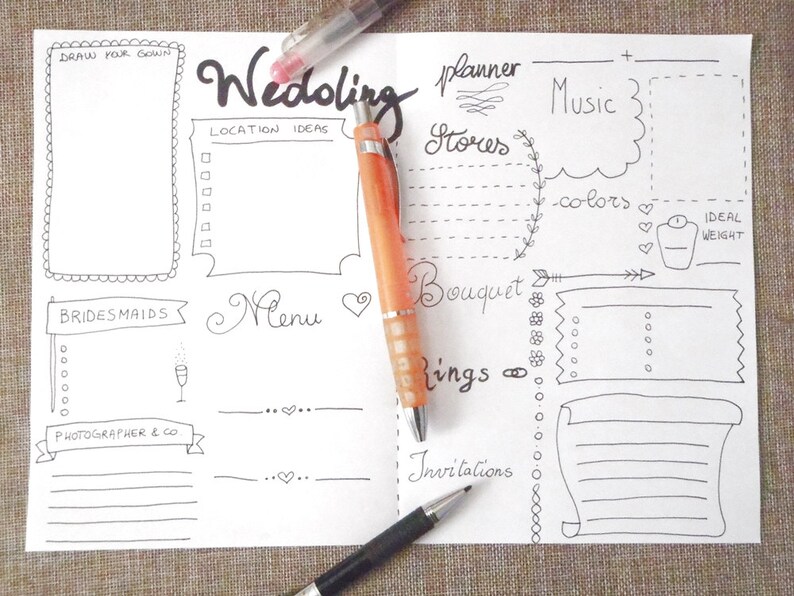 DRAW YOUR GOWN
Wedding
planner
+
LOCATION IDEAS
Music
Stores
colors
IDEAL
WEIGHT
BRIDESMAIDS
Menu
Bouquet
Rings
PHOTOGRAPHER & CO.
Invitations